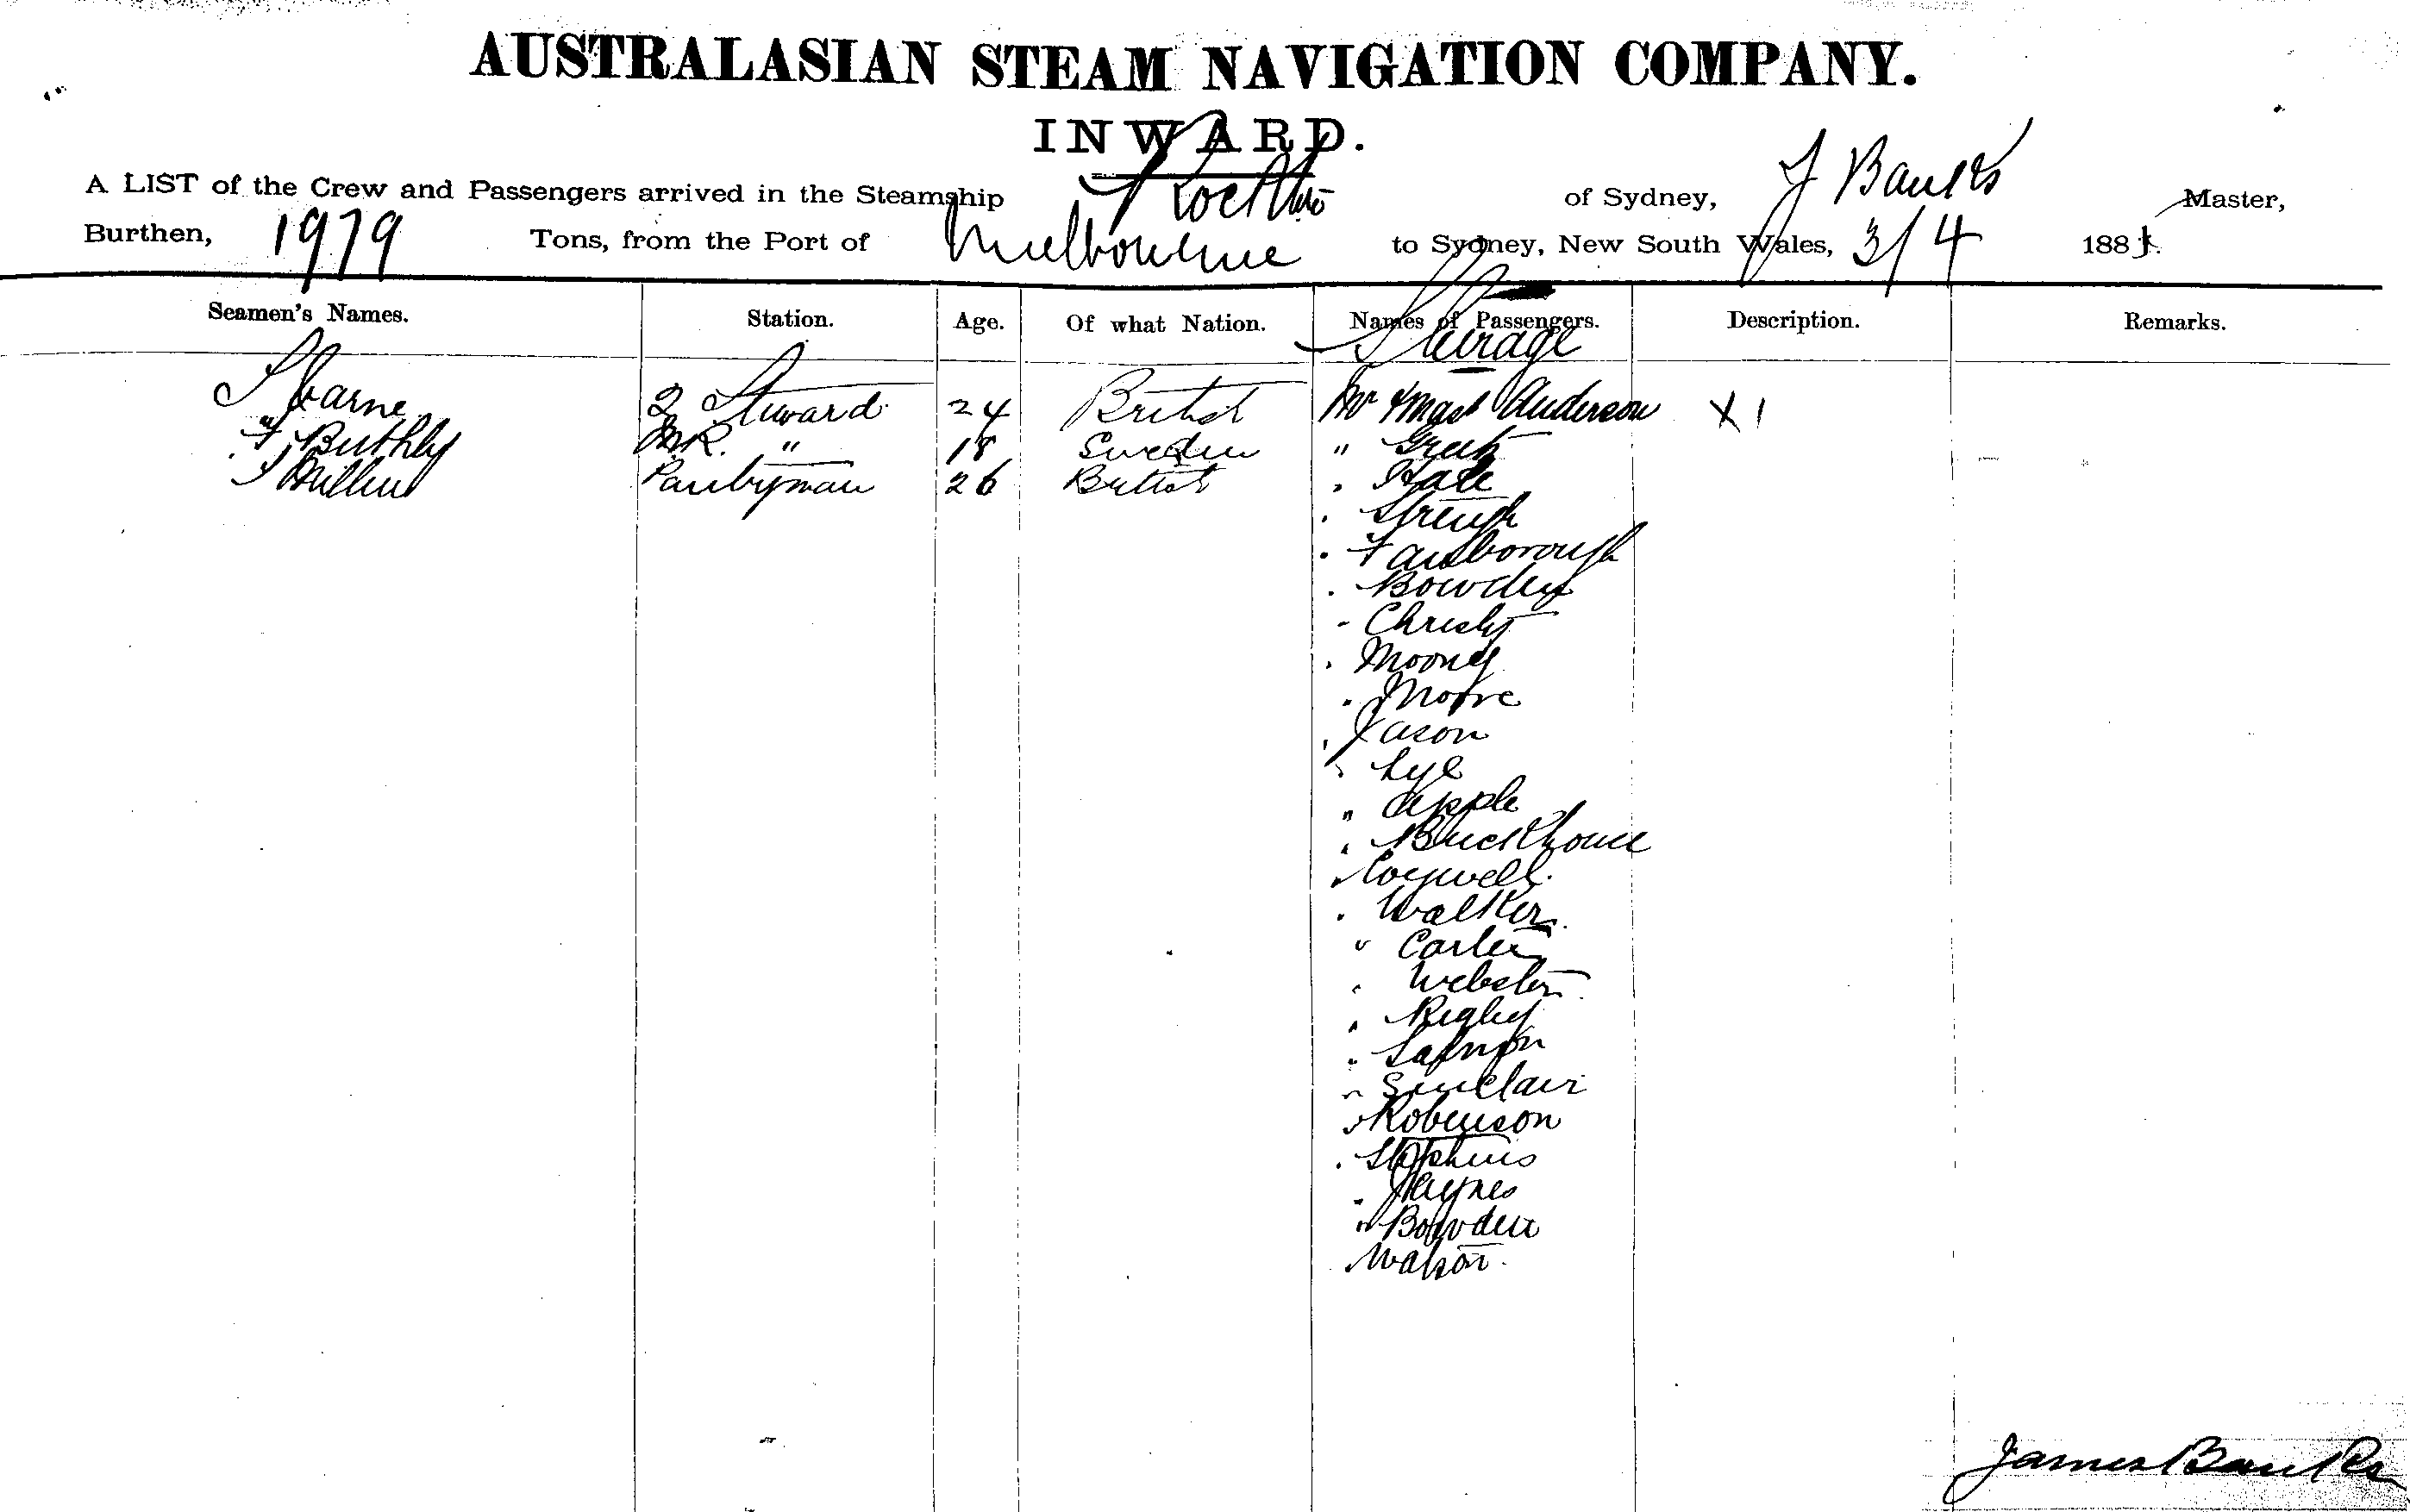 AUSTRALASIAN STEAM NAVIGATION COMPANY.
INWARD.
A LIST of the Crew and Passengers arrived in the Steamship of Sydney, J Banks Master,
Burthen, 1979 Tons, from the Port of Melbourne to Sydney, New South Wales, 3/4 188
Seamen's Names. Station. Age. Of what Nation. Names of Passengers. Description. Remarks.
Steerage
2 Steward 24 British Mr & Mast Anderson X 1
F M.R. " 18 Sweden "
Pantryman 26 British Hale
French
Farnborough
Bowden
Christy
Mooney
Moore
Jason
Lye
" Apple
Walker
" Carter
Webster
Rigby
Sinclair
Robinson
Stephens
Haynes
" Bowden
Watson
James Banks